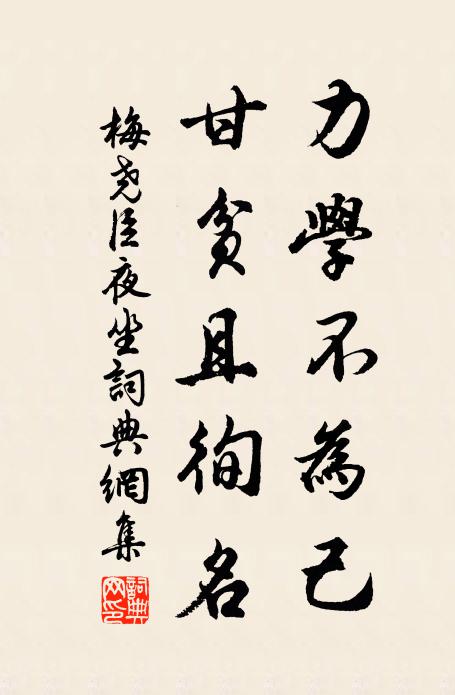 力學不為己
甘貧且徇名
梅堯臣夜坐詞典網集
詞典
网印